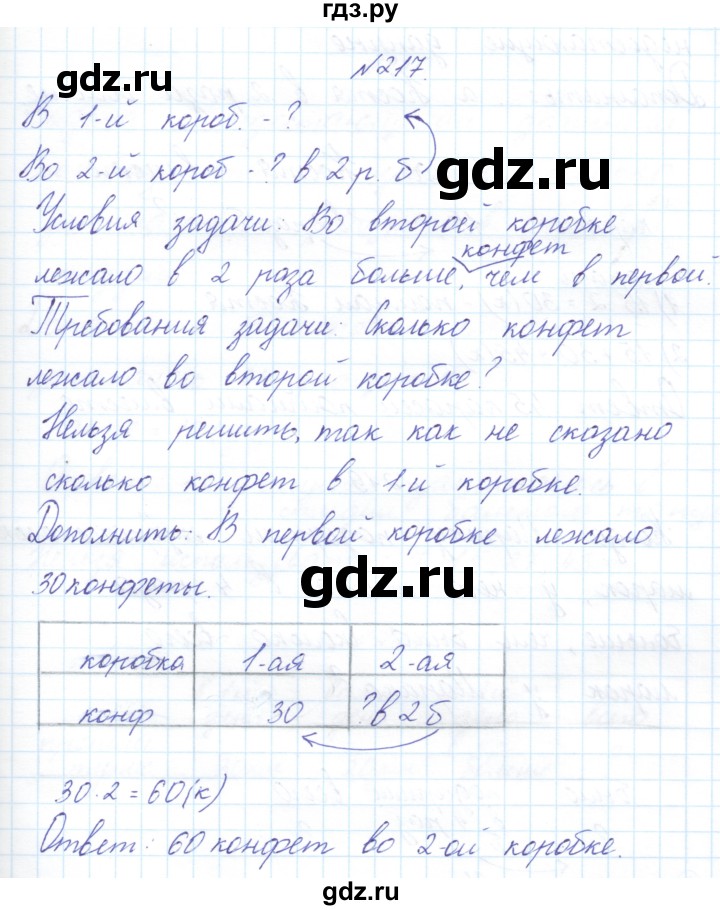 гдз.ру
gdz.ru
№217.
В 1-й короб. - ?
Во 2-й короб - ? в 2 р. б
gdz.ru
Условия задачи: Во второй коробке
конфет
лежало в 2 раза больше, чем в первой.
Требования задачи: Сколько конфет
лежало во второй коробке?
Нельзя решить, так как не сказано
сколько конфет в 1-й коробке.
Дополнить: В первой коробке лежало
30 конфеты.
gdz.ru
коробка 1-ая 2-ая
конф 30 ? в 2 б
30 · 2 = 60 (к)
Ответ: 60 конфет во 2-ой коробке.
gdz.ru